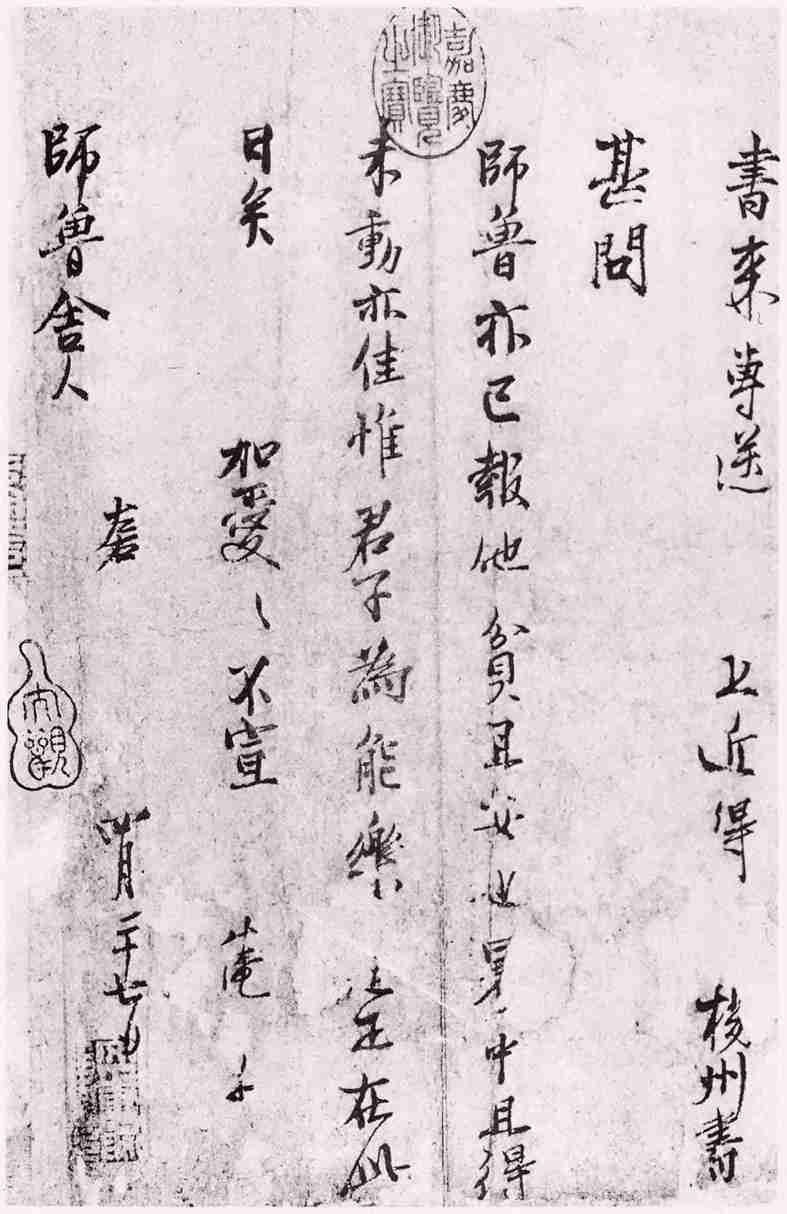 嘉慶御覽之寶
書來尊送 上近得 揚州書
甚問
師魯亦已報他貧且安也暑中且得
未動亦佳惟君子為能樂道正在此
日矣 加愛〻不宣 仲淹
師魯舍人 左右
四月二十七日
大觀